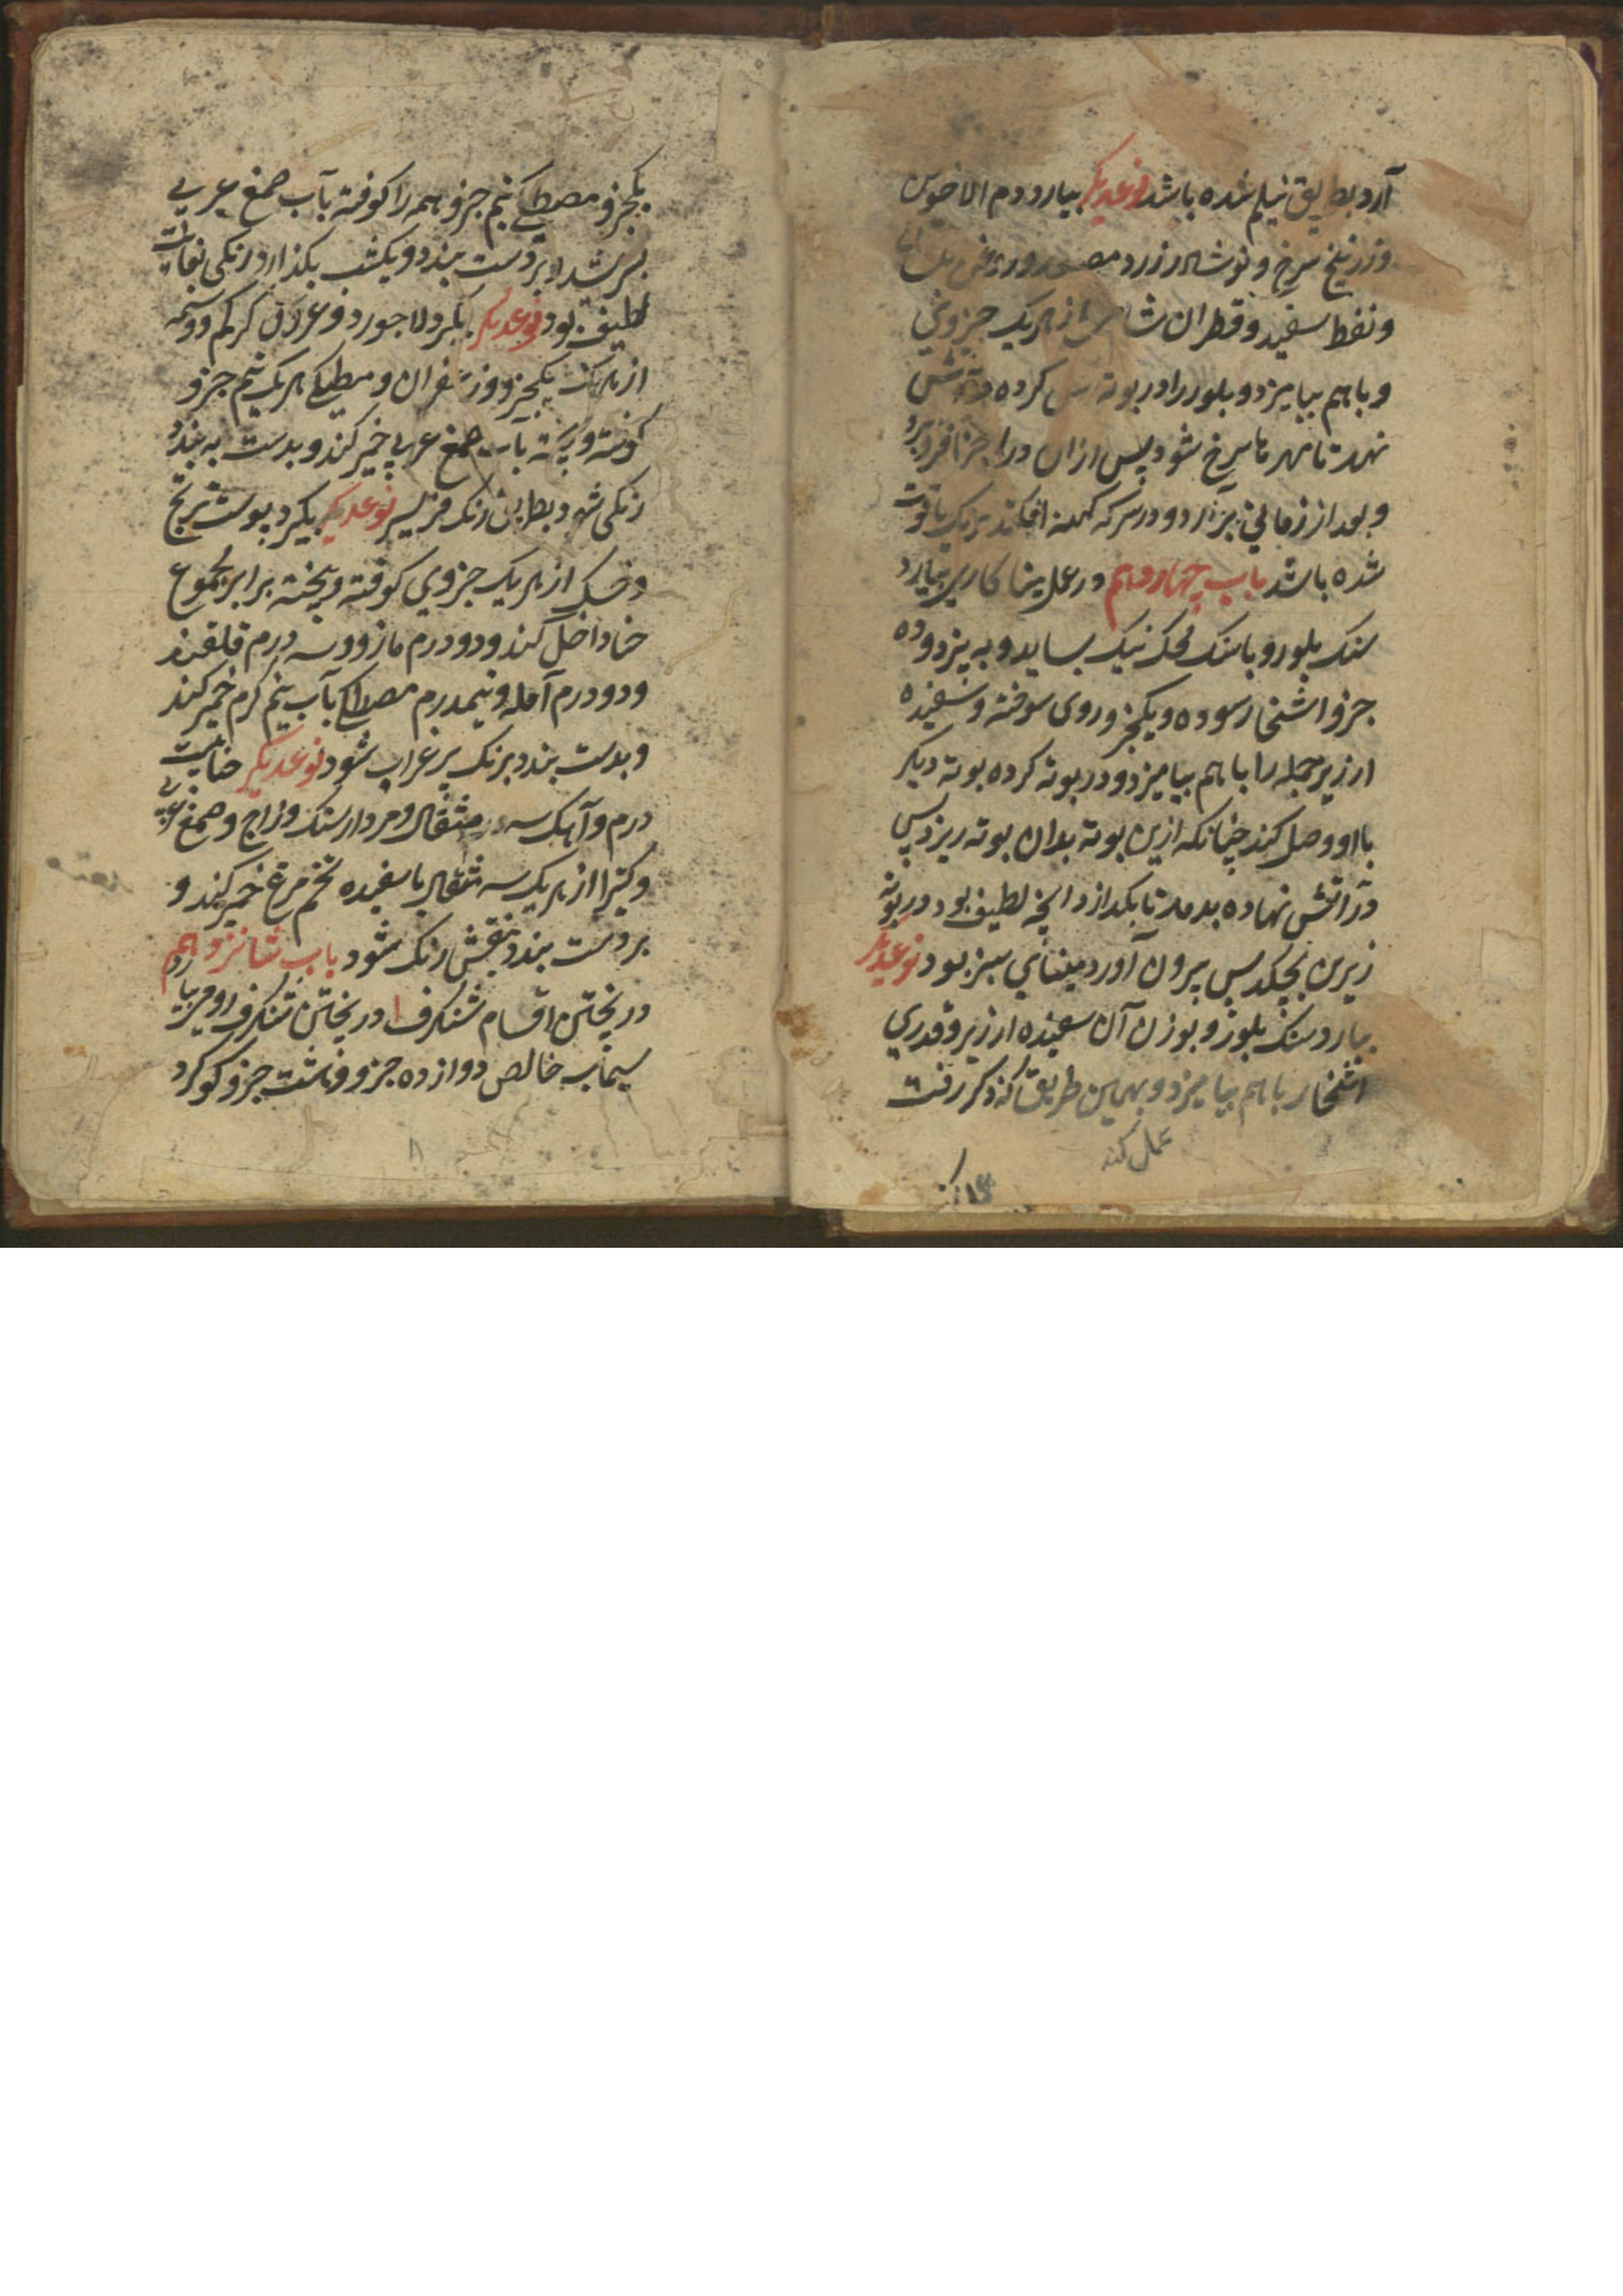 آرد بطریق نیلم شده باشد نوعدیکر بیارد دم الاخوین
و زرنیخ سرخ و نوشادر زرد مصعد و روغن
و نفط سفید و قطران شامی از هر یک جزوی
و با هم بیامیزد و بلور را در بوته کرده در آتش
نهد تا مهر تا سرخ شود پس ازان در اجزا فرو برد
و بعد از زمانی برآرد و در سرکه کهنه افکند برنک یاقوت
شده باشد باب چهاردهم در عمل مینا کاری بیارد
سنک بلور و با سنک محک نیک بساید و به پزد و ده
جزو اشخار سوده و یکجزو روی سوخته و سفیده
ارزیز جمله را با هم بیامیزد و در بوته کرده بوته دیکر
با او وصل کند چنانکه ازین بوته بدان بوته ریزد پس
در آتش نهاده بدمد تا بکدازد انچه لطیف بود در بوته
زیرین بچکد پس بیرون آورد مینای سبز بود نوعدیکر
بیارد سنک بلور و بوزن آن سفیده ارزیز و قدری
اشخار با هم بیامیزد و بهمین طریق که ذکر رفت
عمل کند
یکجزو مصطکی نیم جزو همه را کوفته بآب صمغ عربی
بسرشد و بر دست بندد و یکشب بکذارد رنکی بغایت
لطیف بود نوعدیکر بکیرد لاجورد و عروق کرکم و وسمه
از هر یک یکجزو و زعفران و مصطکی هر یک نیم جزو
کوفته و بیخته بآب صمغ عربی خمیر کند و بدست به بندد
رنکی شود نوعدیکر بکیرد پوست ترنج
و خسک از هر یک جزوی کوفته و بیخته برابر مجموع
حنا داخل کند و دو درم مازو و سه درم قلقند
و دو درم آمله و نیمدرم مصطکی بآب نیم کرم خمیر کند
و بدست بندد برنک پر غراب شود نوعدیکر حنا بیست
درم و آهک سه مثقال و مردارسنک و زاج و صمغ عربی
و کتیرا از هر یک سه مثقال با سفیده تخم مرغ خمیر کند و
بر دست بندد بنفش رنک شود باب شانزدهم
در پختن اقسام شنکرف در پختن شنکرف رومی بیارد
سیماب خالص دوازده جزو و هشت جزو کوکرد